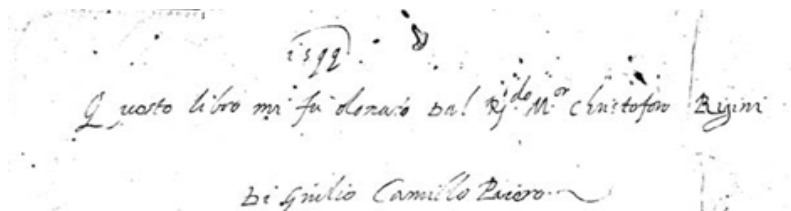 1599
Questo libro mi fu donato Dal R.do M.or Christoforo
Di Giulio Camillo